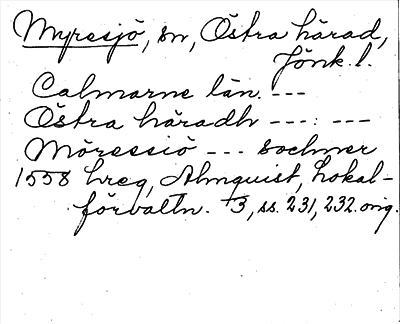 Myresjö, sn, Östra härad,
Jönk. l.
Calmarne län. ---
Östra häradh ---:---
Möressiö --- sochner
1558 hreg, Almquist, Lokal-
förvaltn. 3, ss. 231, 232. orig.